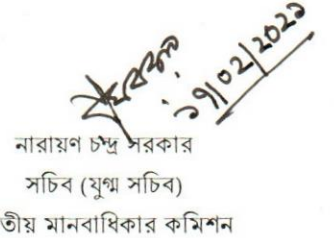 ১৭/০২/২০২১
নারায়ণ চন্দ্র সরকার
সচিব (যুগ্ম সচিব)
তীয় মানবাধিকার কমিশন